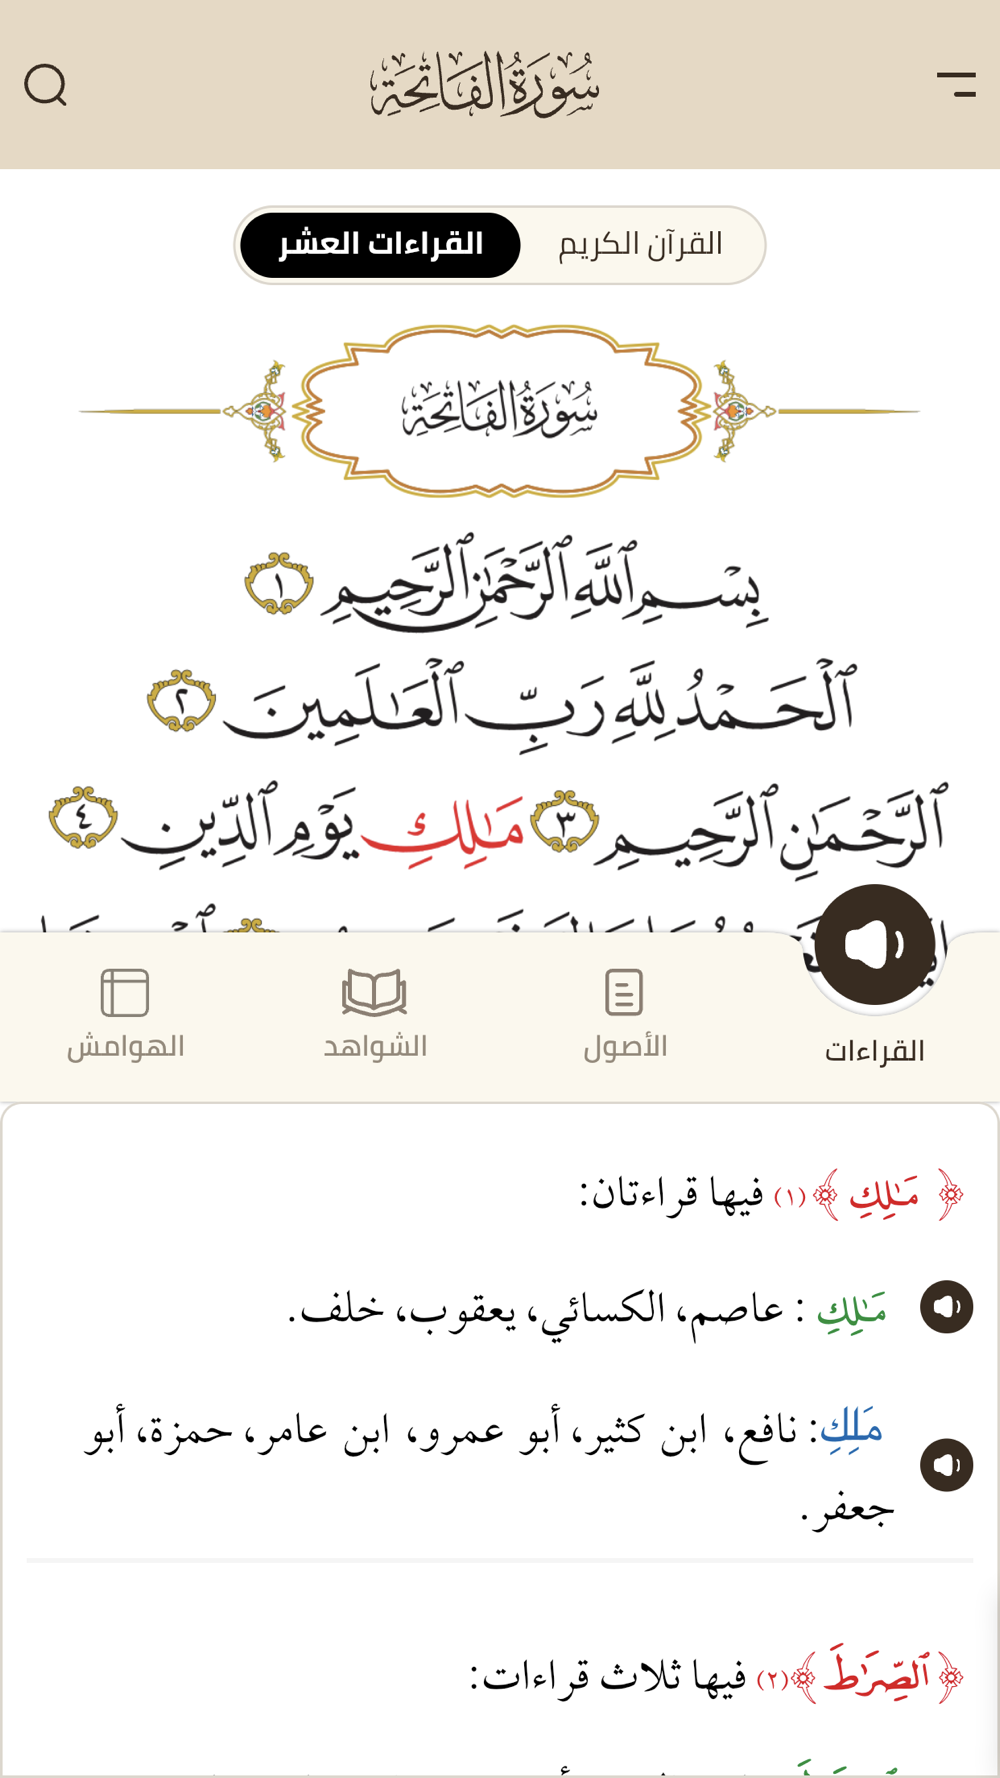 سُورَةُ الفَاتِحَةِ
القرآن الكريم
القراءات العشر
سُورَةُ الفَاتِحَةِ
بِسْمِ ٱللَّهِ ٱلرَّحْمَٰنِ ٱلرَّحِيمِ ١
ٱلْحَمْدُ لِلَّهِ رَبِّ ٱلْعَٰلَمِينَ ٢
ٱلرَّحْمَٰنِ ٱلرَّحِيمِ ٣ مَٰلِكِ يَوْمِ ٱلدِّينِ ٤
القراءات
الأصول
الشواهد
الهوامش
﴿ مَٰلِكِ ﴾ (١) فيها قراءتان:
مَٰلِكِ : عاصم، الكسائي، يعقوب، خلف.
مَلِكِ: نافع، ابن كثير، أبو عمرو، ابن عامر، حمزة، أبو
جعفر.
﴿ ٱلصِّرَٰطَ ﴾ (٢) فيها ثلاث قراءات: